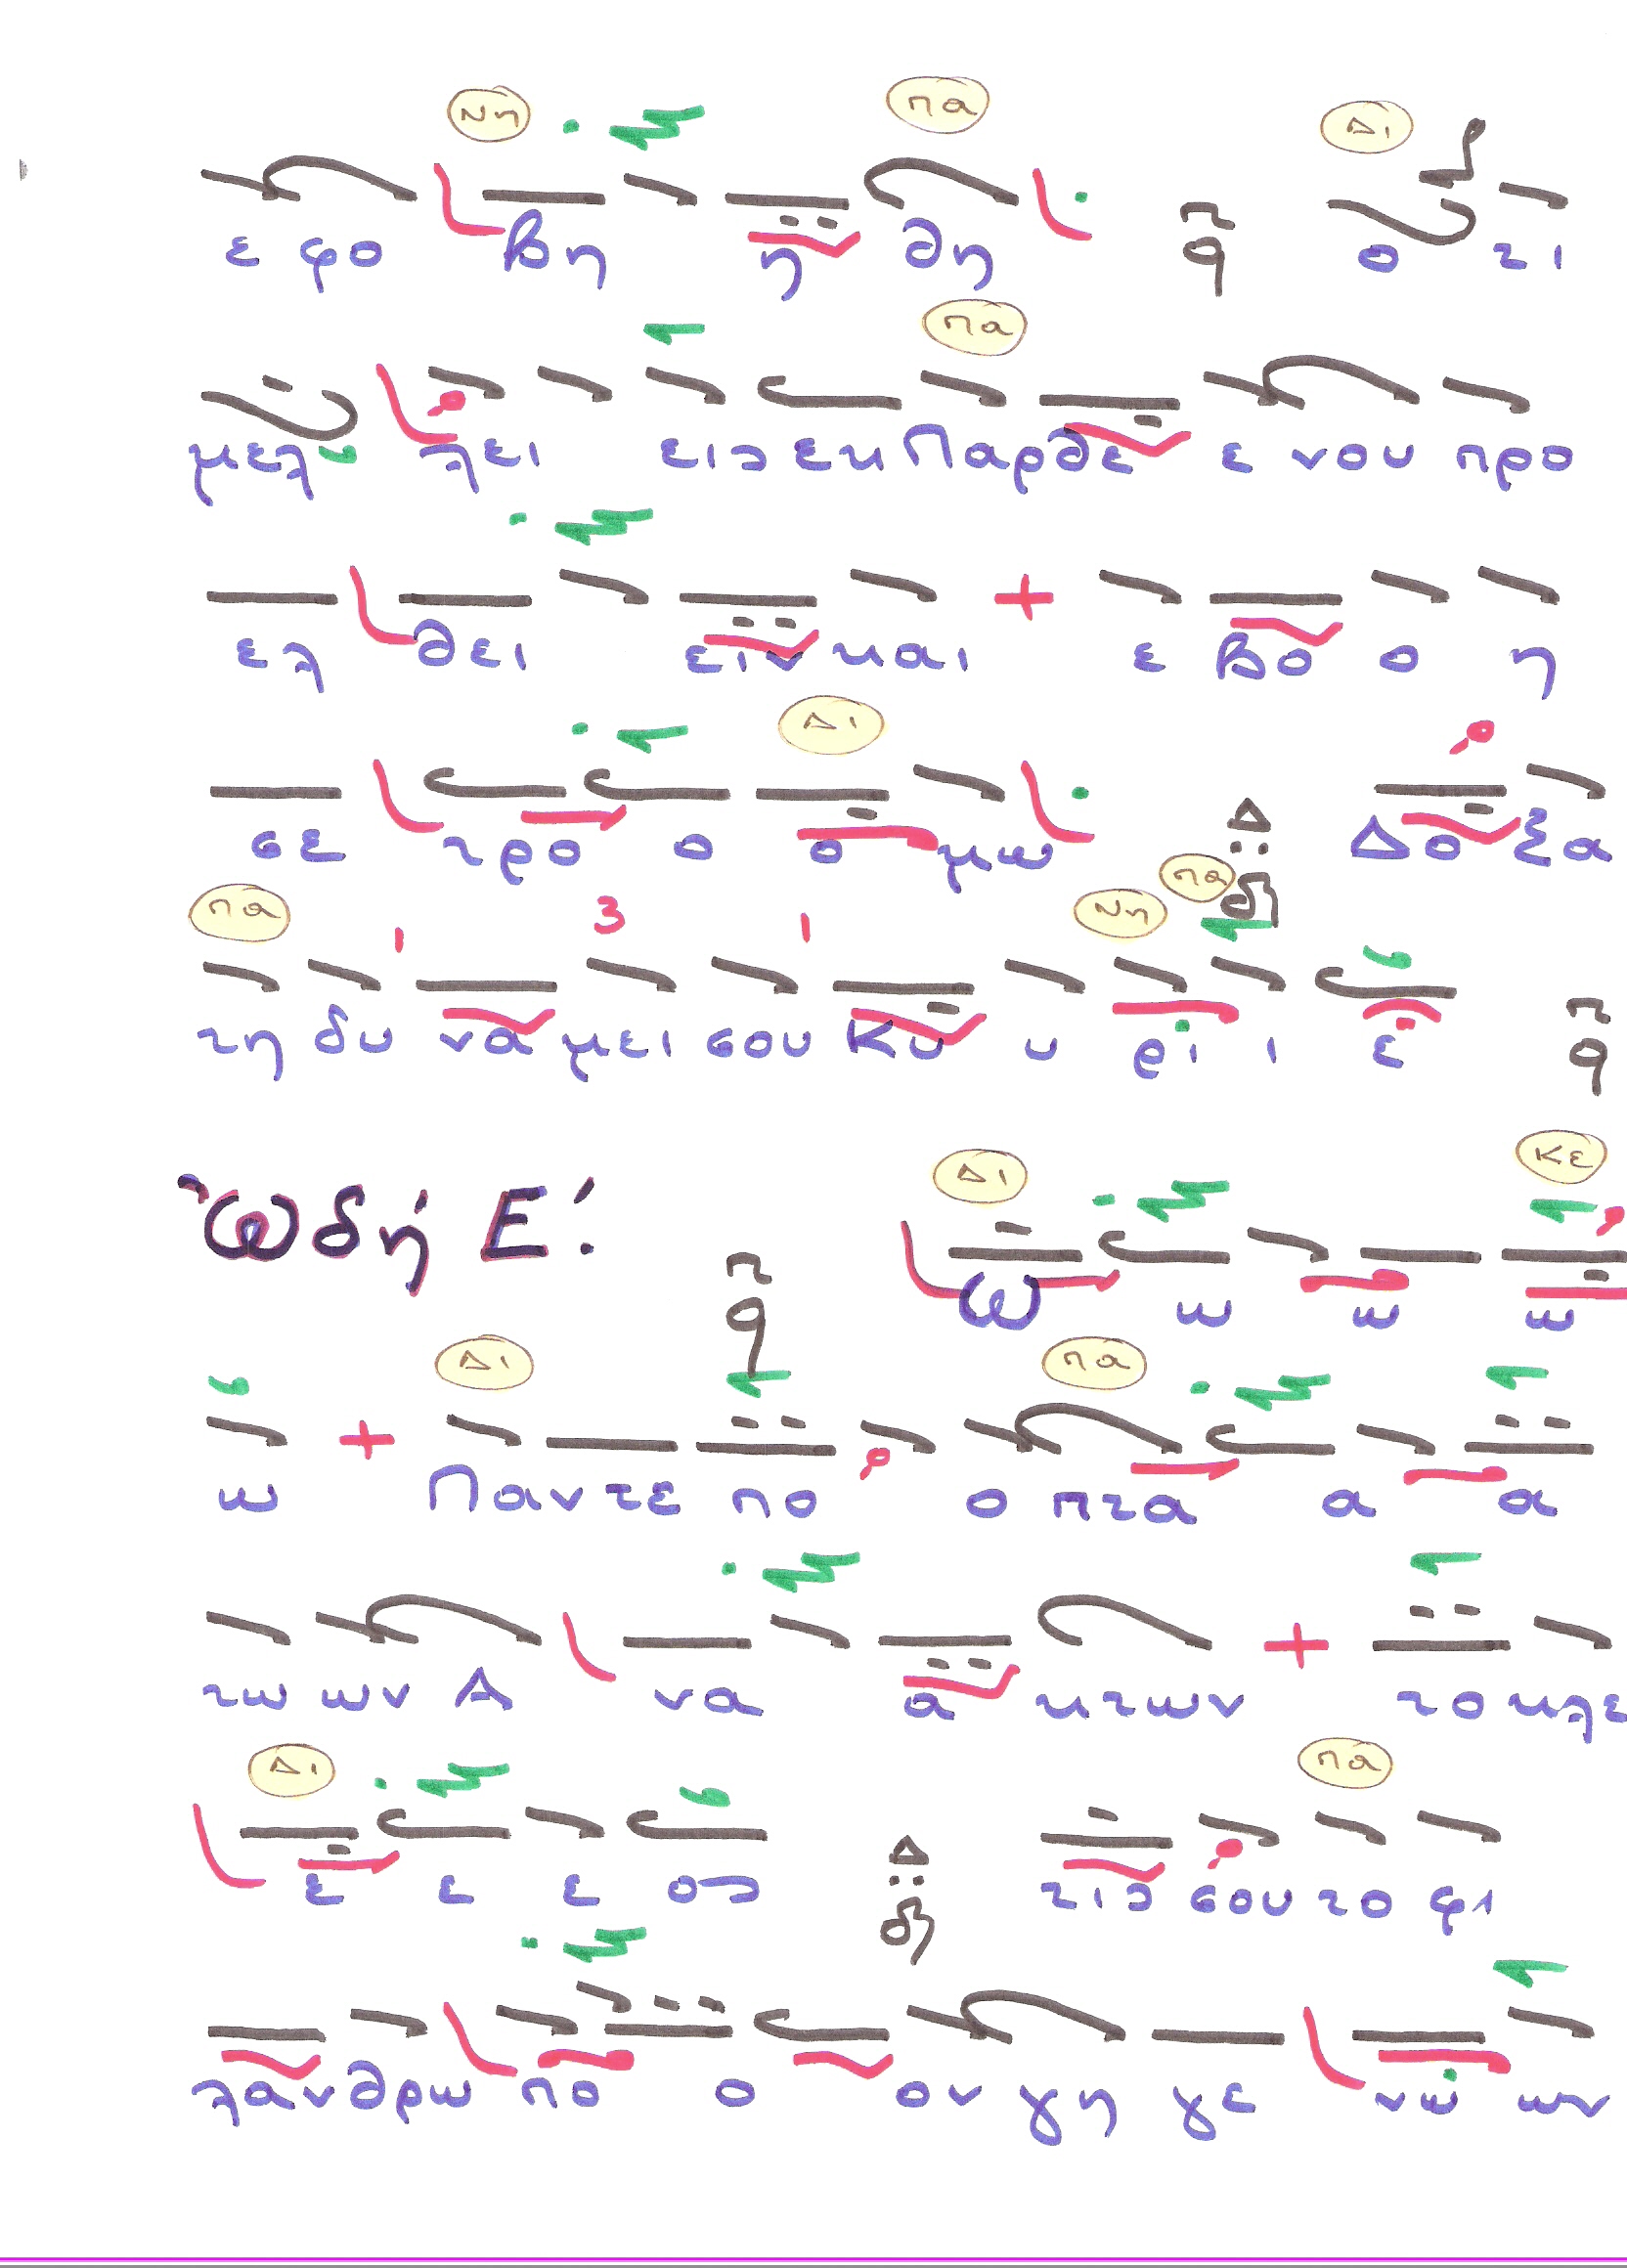 Νη πα Δι
ε φο βη η θη π q ο τι
πα
μελ λει εις εκ Παρθε ε νου προ
ελ θει ειν και + ε βο ο η
Δι
σε τρο ο ο μω Δ Δο ξα
πα 1 3 1 Νη πα
τη δυ να μει σου Κυ υ ρι ι ε π q
Ὠδή Ε΄. π q Δι Κε
Ω ω ω ω
Δι πα
ω + Παντε πο ο πτα α α
τω ων Α να α κτων + το κλε
Δι πα
ε ε ε ος Δ τις σου το φι
λανθρω πο ο ον γη γε νω ων